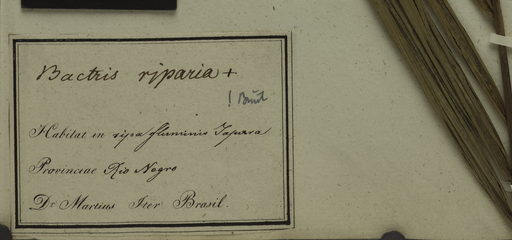 Bactris riparia +
! Burret
Habitat in ripa fluminis Japura
Provinciae Rio Negro
Dr Martius Iter Brasil.